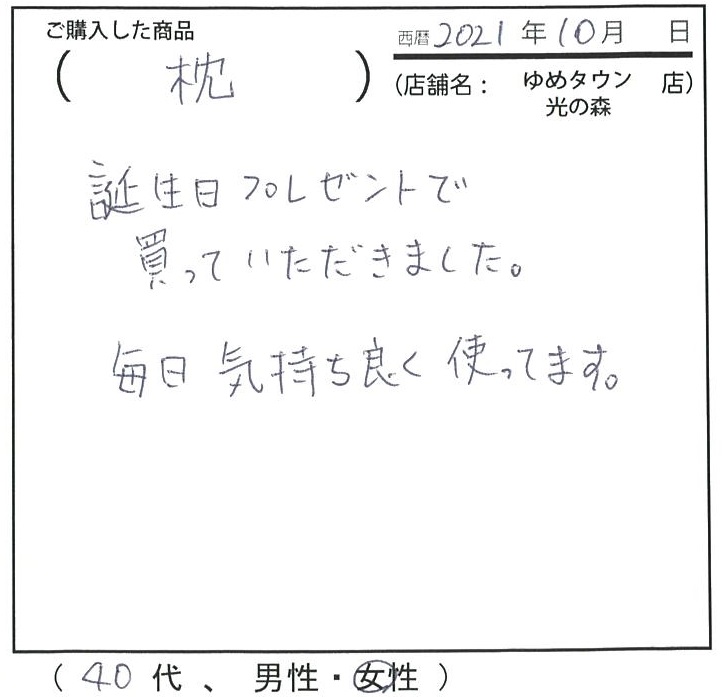 ご購入した商品
( 枕 )
西暦 2021 年 10 月 日
(店舗名： ゆめタウン 光の森 店)
誕生日プレゼントで
買っていただきました。
毎日 気持ち良く 使ってます。
( 40 代 、 男性・女性 )